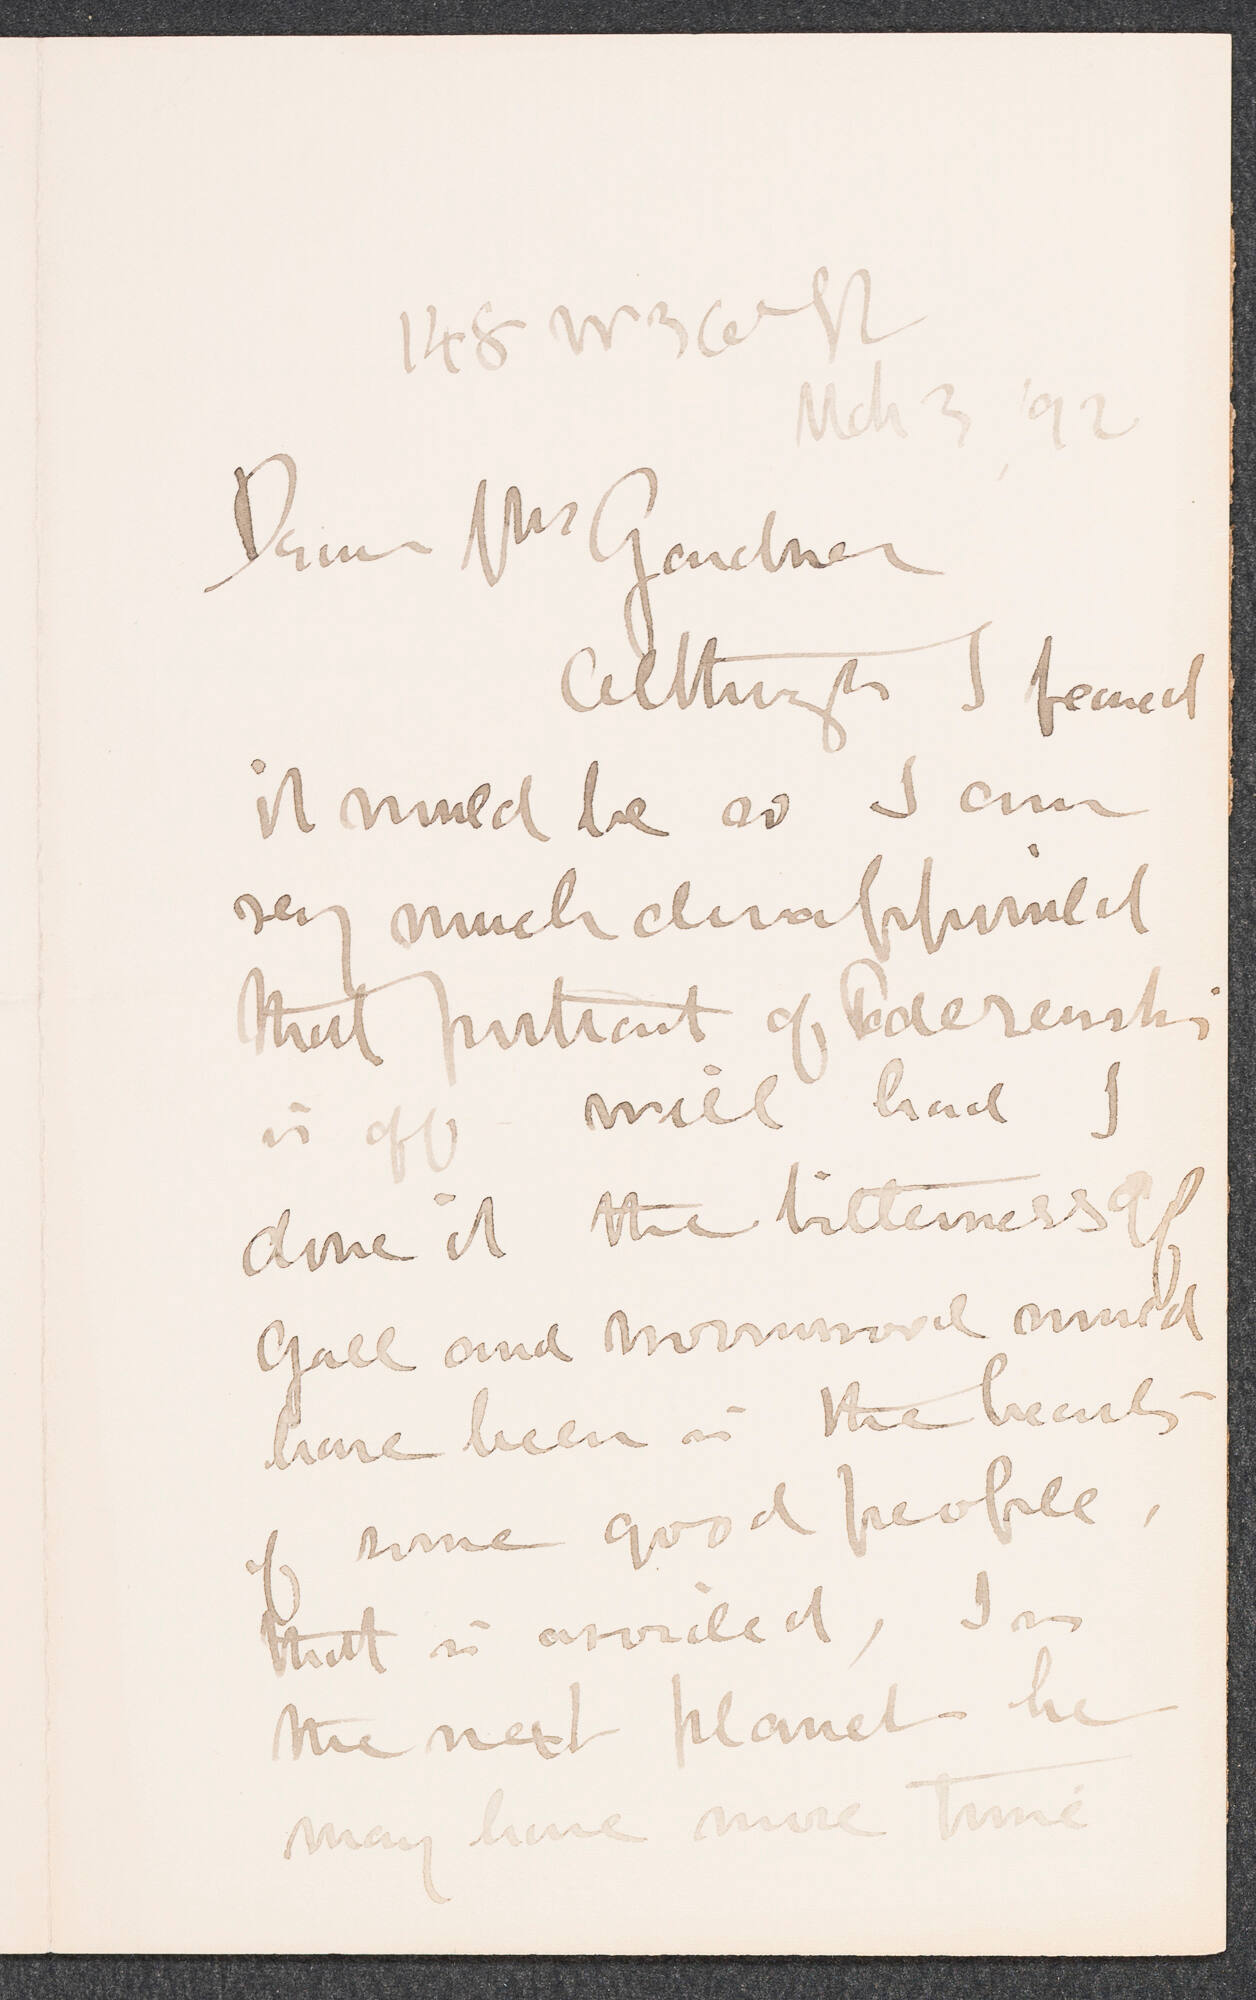 148 W 36th St
Mch 3, '92
Dear Mrs Gardner
Although I feared
it would be so I am
very much disappointed
that portrait of Paderewski
is off - well had I
done it the bitterness of
gall and wormwood would
have been in the hearts
of some good people,
that is avoided, In
the next planet he
may have more time